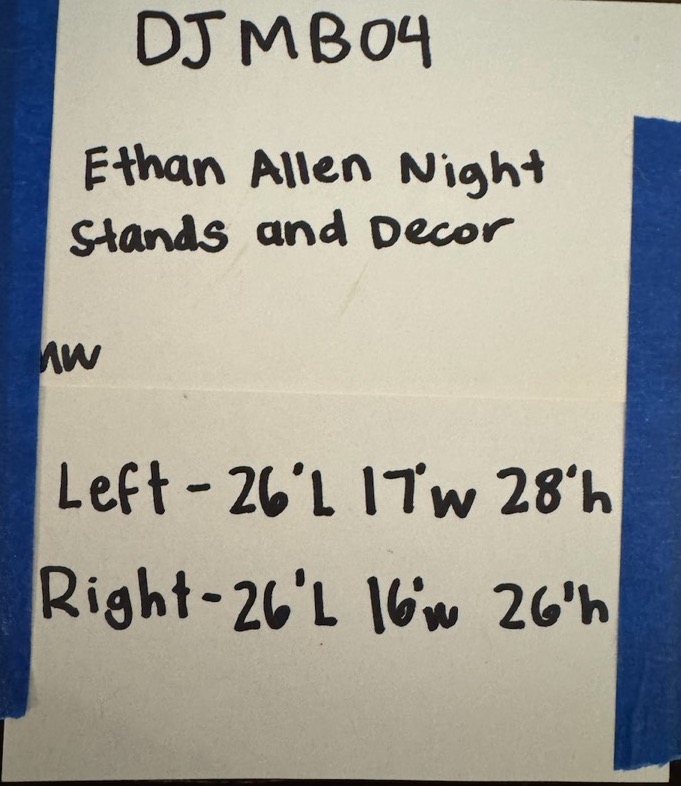 DJMB04
Ethan Allen Night
Stands and Decor
NW
Left - 26'L 17'w 28'h
Right - 26'L 16'w 26'h